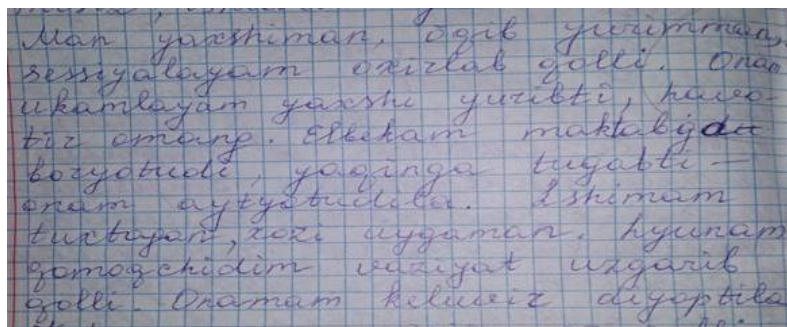 Man yaxshiman, ōqib yurimman,
sessiyalayam oxirlab qolli. Onam
ukamlayam yaxshi yuribti, havo-
tir omang. Elbekam maktabga
boryotudi, yaqinga tugabti –
onam aytyotudila. Ishimam
tuxtagan, xozi uygaman. Iyunam
qomoqchidim vaziyat uzgarib
qolli. Onamam keluviz diyoptila